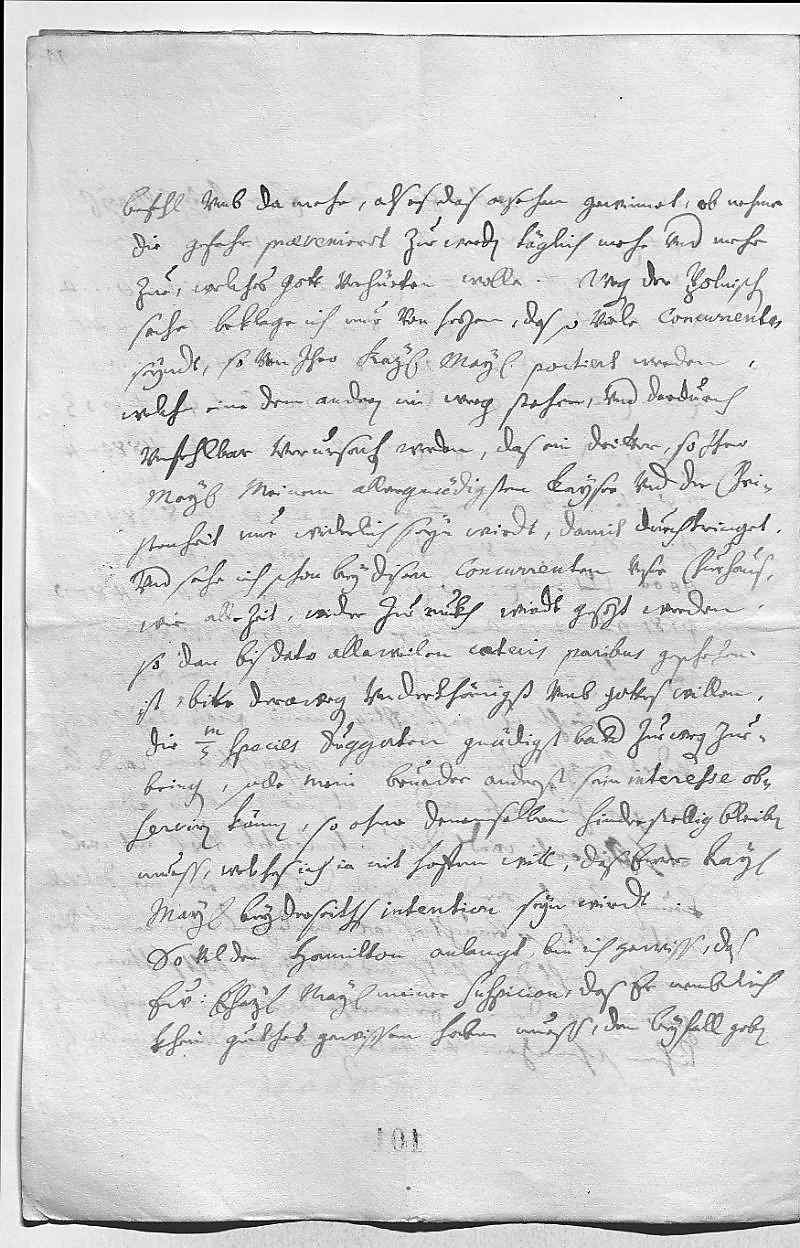 befehl Umb da mehr, als es das ansehen gewinnet, ob nehme
die gefahr praevenieret zu werdn täglich mehr Und mehr
zue, welches gott verhüeten wolle. Weg der Polnisch
sache beklage ich nur Von herzen, das so viele Concurrenten
seyndt, so von Ihro Kayl. Mayl. portiert werden,
welche eine dem andern im weeg stehen, Und dardurch
Unfehlbar Verursach werden, das ein dritter, so Ihro
Mayl Meinem allergnädigsten Kayser Und der Chri-
stenheit nur widerlich seyn wirdt, damit durchtringet.
Und sehe ich schon bey disen Concurrenten Unser Churhaus,
wie alle Zeit, wider zu rukh wirdt gesezt werden,
so dan bis dato allweilen caeteris paribus geschehen
ist, bitte derweeg Underthänigst Umb gottes willen,
die m/5 species Duggaten gnädigst baldt zuweg zue-
bring, alls mein brueder anderst sein interesse ob-
servirn könn, so ohne denenselben hinderstellig bleibn
muess, welches ich ja nit hoffen will, dis Euer Kayl
Mayl beyderseiths intention seyn wirdt.
So Vil den Hamilton anlangt bin ich gewiss, das
Eur: Khayl Mayl meiner Suspicion, das Er
khein guethes gewissen haben muess, den beyfall gebn
101